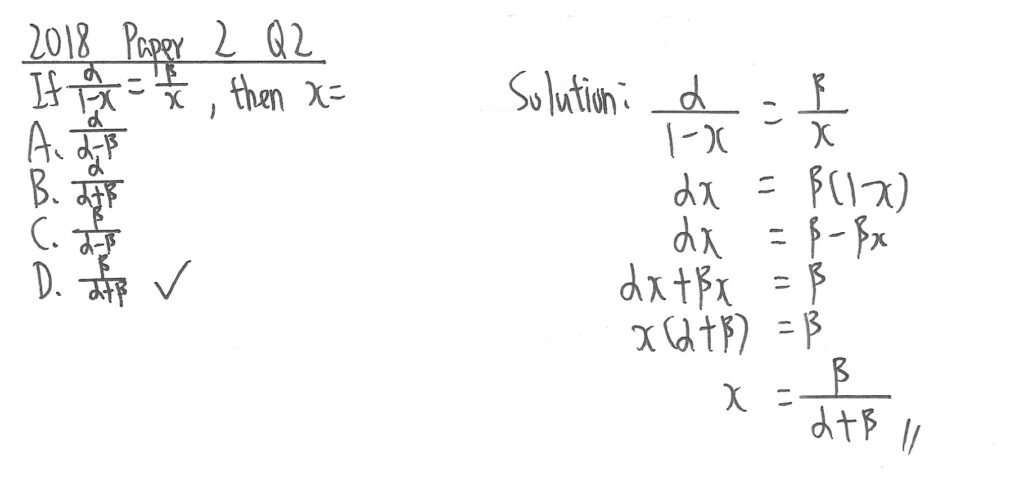 2018 Paper 2 Q2
If α/(1-x) = β/x, then x=
A. α/(α-β)
B. α/(α+β)
C. β/(α-β)
D. β/(α+β) ✓
Solution: α/(1-x) = β/x
αx = β(1-x)
αx = β-βx
αx+βx = β
x(α+β) = β
x = β/(α+β) //